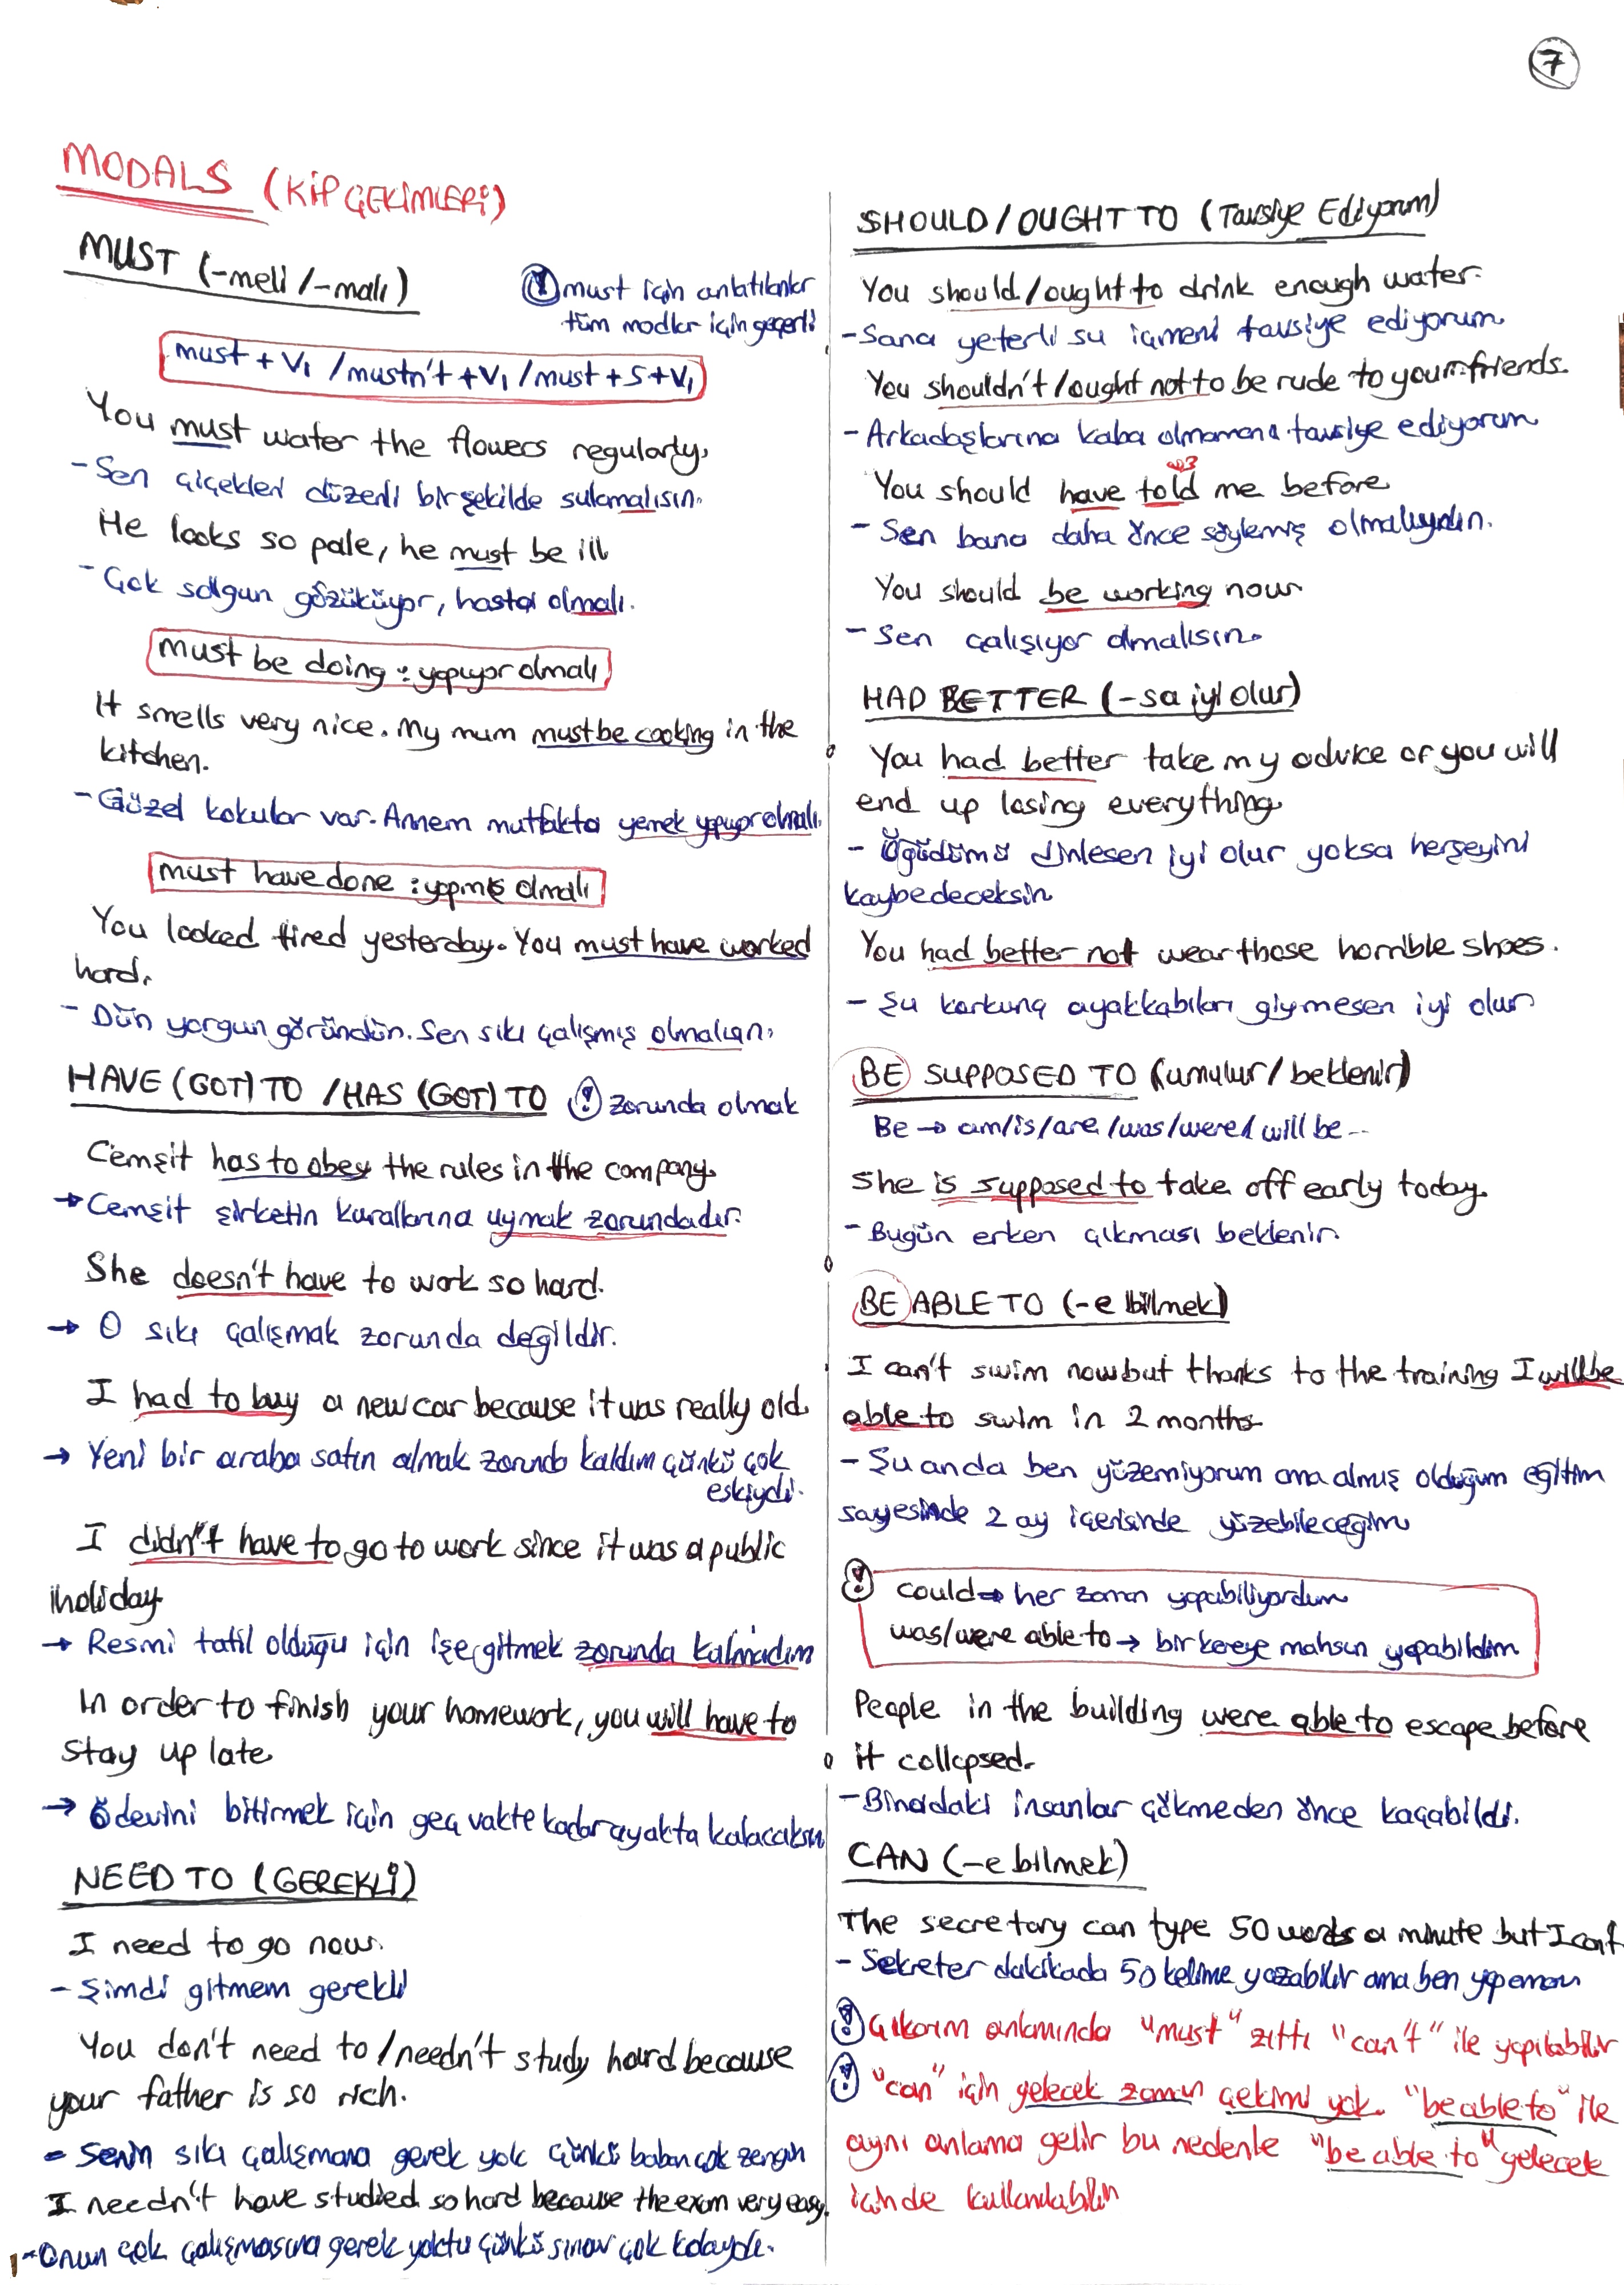 7
MODALS (KİP ÇEKİMLERİ)
MUST (-meli/-malı)
! must için anlatılanlar
tüm modlar için geçerli
must + V1 / mustn't + V1 / must + S + V1
You must water the flowers regularly.
- Sen çiçekleri düzenli bir şekilde sulamalısın.
He looks so pale, he must be ill
- Çok solgun gözüküyor, hasta olmalı.
must be doing : yapıyor olmalı
It smells very nice. My mum must be cooking in the
kitchen.
- Güzel kokular var. Annem mutfakta yemek yapıyor olmalı.
must have done : yapmış olmalı
You looked tired yesterday. You must have worked
hard.
- Dün yorgun göründün. Sen sıkı çalışmış olmalısın.
HAVE (GOT) TO / HAS (GOT) TO ! zorunda olmak
Cemşit has to obey the rules in the company.
→ Cemşit şirketin kurallarına uymak zorundadır.
She doesn't have to work so hard.
→ O sıkı çalışmak zorunda değildir.
I had to buy a new car because it was really old.
→ Yeni bir araba satın almak zorunda kaldım çünkü çok
eskiydi.
I didn't have to go to work since it was a public
holiday.
→ Resmi tatil olduğu için işe gitmek zorunda kalmadım
In order to finish your homework, you will have to
stay up late
→ Ödevini bitirmek için geç vakte kadar ayakta kalacaksın
NEED TO (GEREKLİ)
I need to go now.
- Şimdi gitmem gerekli
You don't need to / needn't study hard because
your father is so rich.
- Senin sıkı çalışmana gerek yok çünkü baban çok zengin
I needn't have studied so hard because the exam very easy.
- Onun çok çalışmasına gerek yoktu çünkü sınav çok kolaydı.
SHOULD / OUGHT TO (Tavsiye Ediyorum)
You should / ought to drink enough water.
- Sana yeterli su içmeni tavsiye ediyorum
You shouldn't / ought not to be rude to your friends.
- Arkadaşlarına kaba olmamanı tavsiye ediyorum
V3
You should have told me before
- Sen bana daha önce söylemiş olmalıydın.
You should be working now
- Sen çalışıyor olmalısın.
HAD BETTER (-sa iyi olur)
You had better take my advice or you will
end up losing everything
- Öğüdümü dinlesen iyi olur yoksa herşeyini
kaybedeceksin
You had better not wear those horrible shoes.
- Şu korkunç ayakkabıları giymesen iyi olur
BE SUPPOSED TO (umulur / beklenir)
Be → am/is/are/was/were/will be...
She is supposed to take off early today.
- Bugün erken çıkması beklenir.
BE ABLE TO (-e bilmek)
I can't swim now but thanks to the training I will be
able to swim in 2 months
- Şu anda ben yüzemiyorum ama almış olduğum eğitim
sayesinde 2 ay içerisinde yüzebileceğim
! could → her zaman yapabiliyordum
was/were able to → bir kereye mahsun yapabildim
People in the building were able to escape before
it collapsed.
- Binadaki insanlar çökmeden önce kaçabildi.
CAN (-e bilmek)
The secretary can type 50 words a minute but I can't
- Sekreter dakikada 50 kelime yazabilir ama ben yapamam
! Çıkarım anlamında "must" zıttı "can't" ile yapılabilir
! "can" için gelecek zaman çekimi yok. "be able to" ile
aynı anlama gelir bu nedenle "be able to" gelecek
içinde kullanılabilir